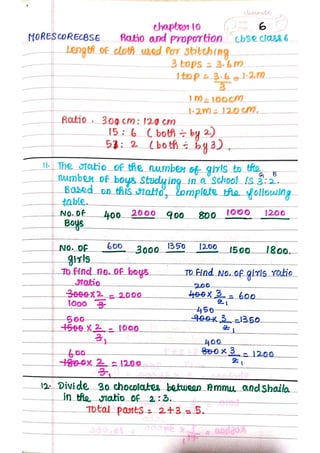 chapter 10 6
MORESCORECBSE Ratio and Proportion cbse class 6
Length of cloth used for stitching
3 tops = 3.6m
1 top = 3.6 = 1.2m
3
1m = 100cm
1.2m = 120cm.
Ratio. 300cm : 120cm
15 : 6 ( both ÷ by 2)
5 : 2 ( both ÷ by 3).
11. The ratio of the number of girls to the
number of boys studying in a school is 3:2.
Based on this ratio, complete the following
table.
No. of 400 2000 900 800 1000 1200
Boys
No. of 600 3000 1350 1200 1500 1800.
girls
To find no. of boys To find No. of girls ratio
ratio 200
3000 x 2 = 2000 400 x 3 = 600
1000 3 2 1
500 450
1500 x 2 = 1000 900 x 3 = 1350
3 1 2 1
600 400
1800 x 2 = 1200 800 x 3 = 1200
3 1 2 1
12. Divide 30 chocolates between Ammu and Shaila
in the ratio of 2:3.
Total parts = 2+3 = 5.